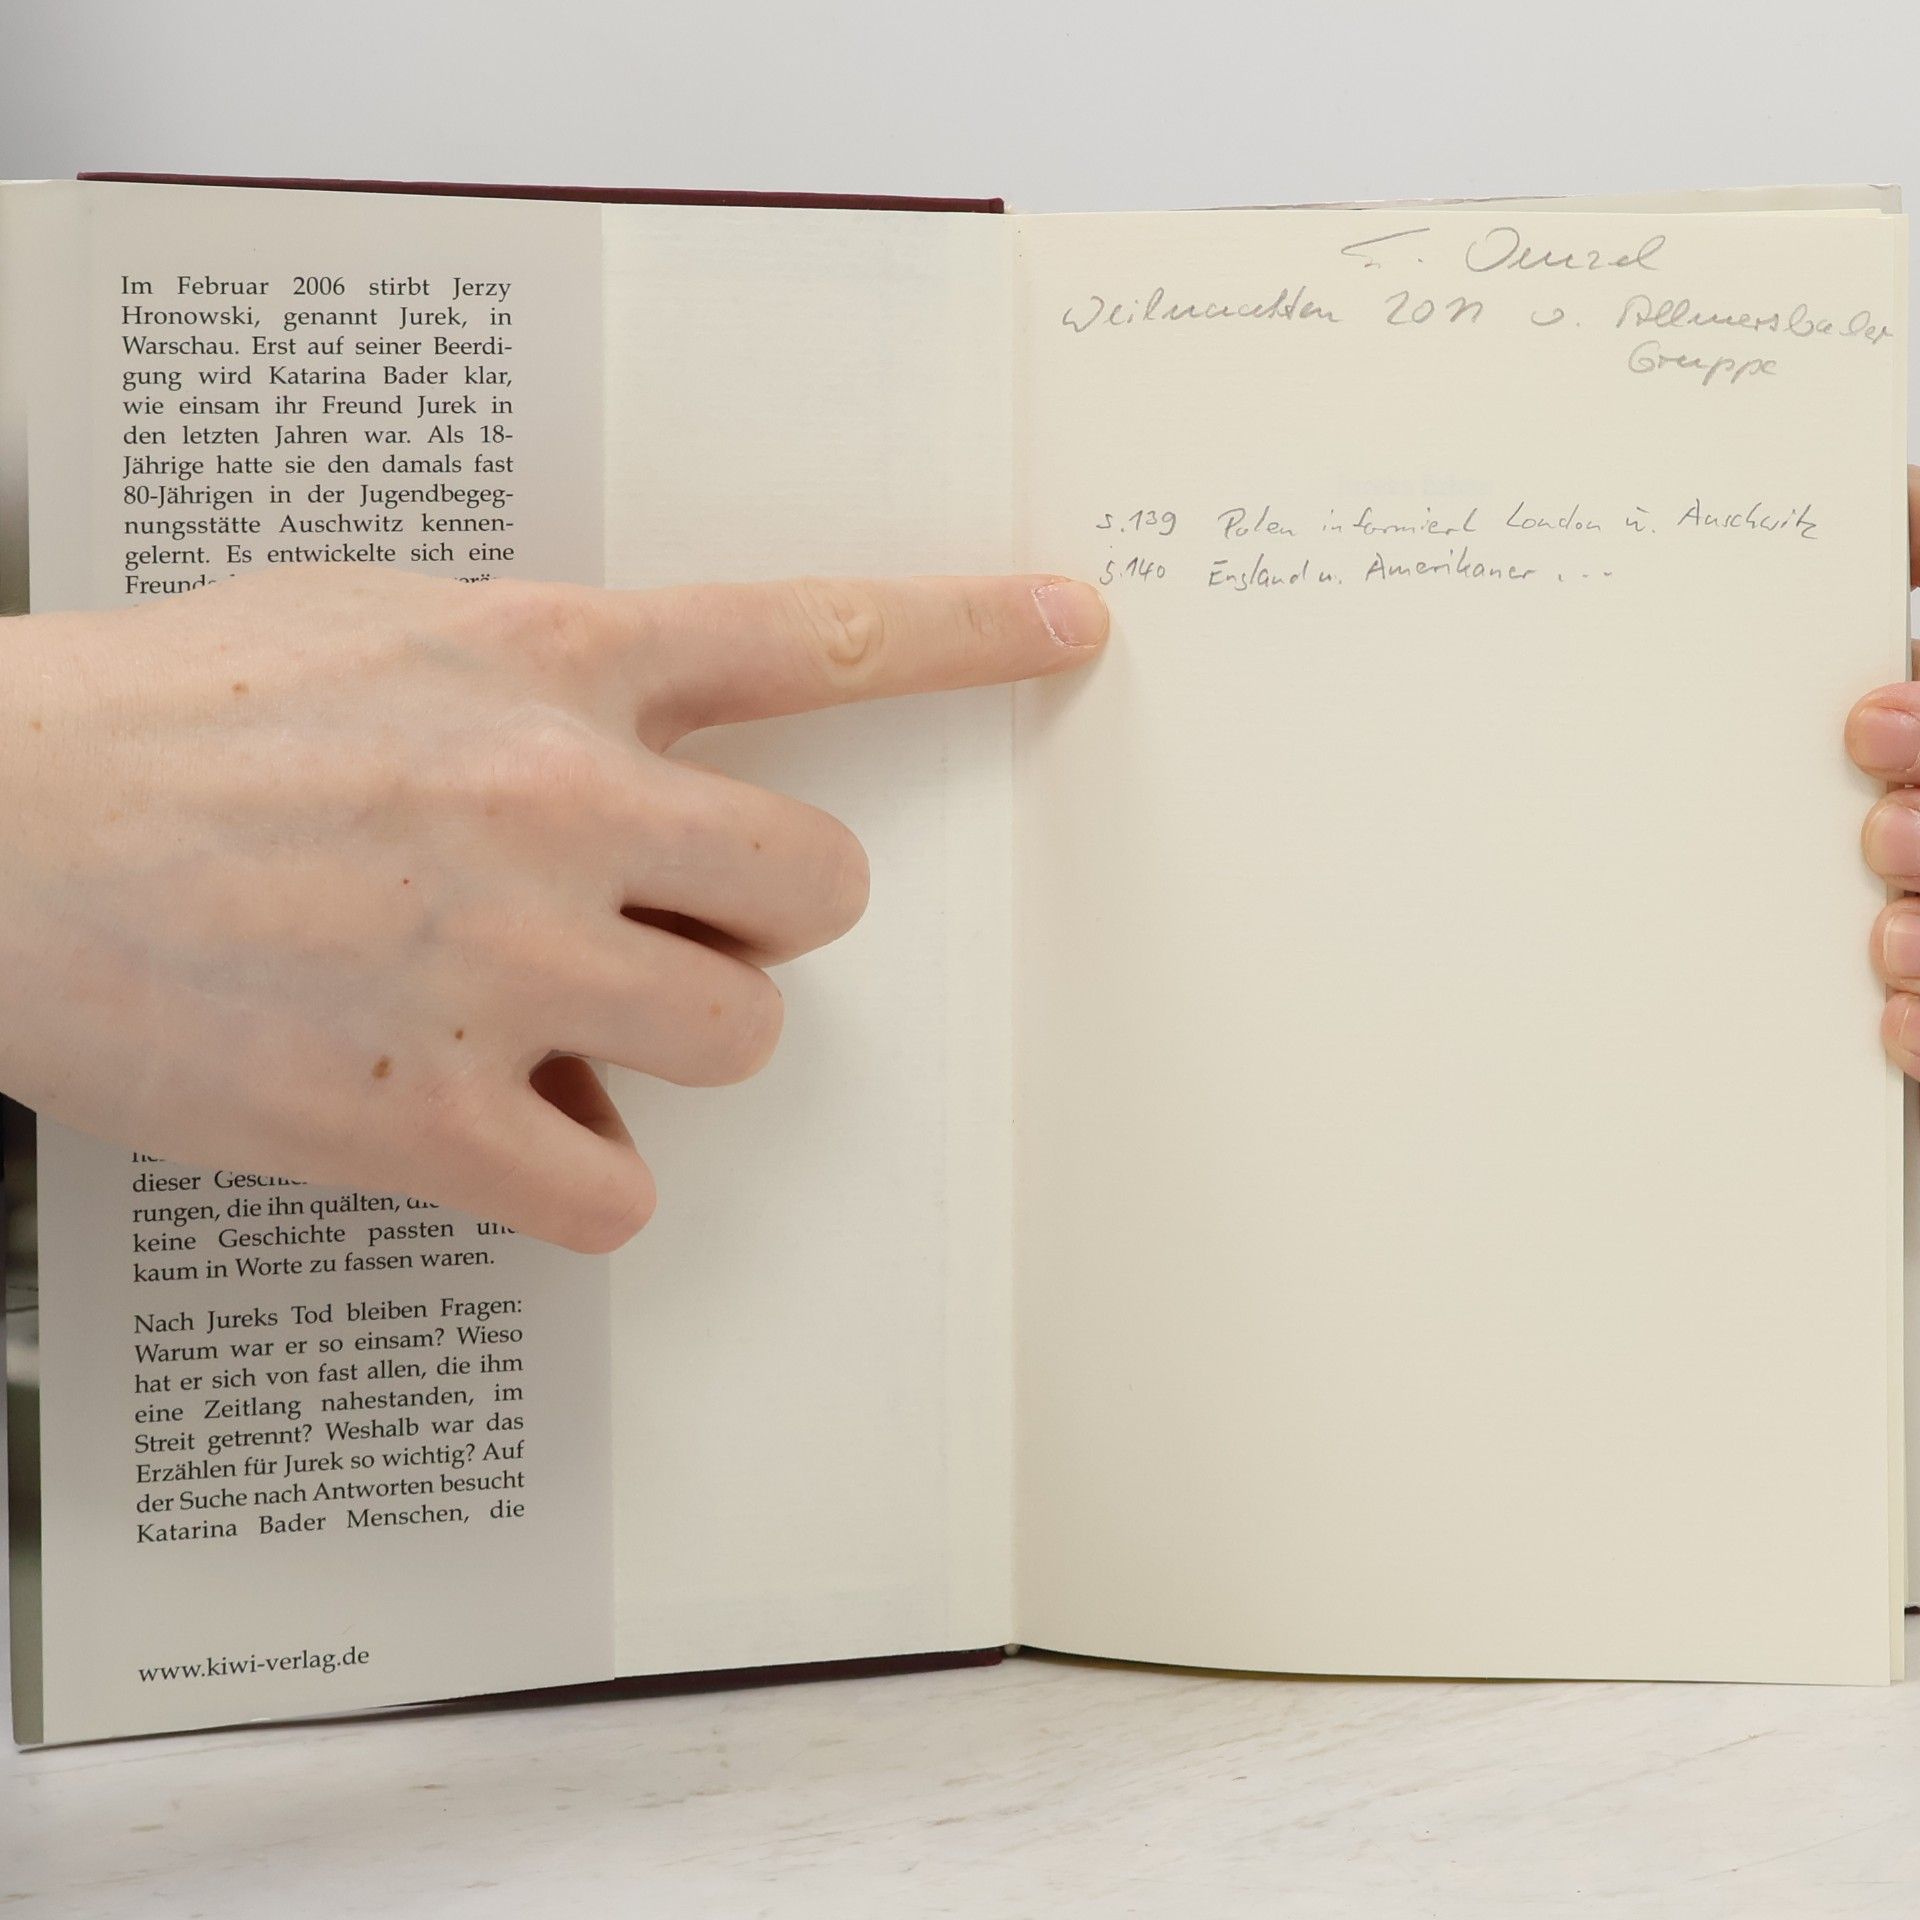 Im Februar 2006 stirbt Jerzy
Hronowski, genannt Jurek, in
Warschau. Erst auf seiner Beerdi-
gung wird Katarina Bader klar,
wie einsam ihr Freund Jurek in
den letzten Jahren war. Als 18-
Jährige hatte sie den damals fast
80-Jährigen in der Jugendbegeg-
nungsstätte Auschwitz kennen-
gelernt. Es entwickelte sich eine
dieser
rungen, die ihn quälten,
keine Geschichte passten
kaum in Worte zu fassen waren.
Nach Jureks Tod bleiben Fragen:
Warum war er so einsam? Wieso
hat er sich von fast allen, die ihm
eine Zeitlang nahestanden, im
Streit getrennt? Weshalb war das
Erzählen für Jurek so wichtig? Auf
der Suche nach Antworten besucht
Katarina Bader Menschen, die
www.kiwi-verlag.de
Weihnachten 2011 v. Allmersbacher
Gruppe
S.139 Polen informiert London ü. Auschwitz
S.140 England u. Amerikaner ...